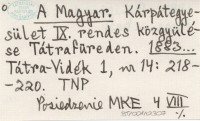 A Magyar. Kárpátegye-
sület IX. rendes közgyülé-
se Tátrafüreden. 1883...
Tátra-Vidék 1, nr 14: 218-
-220. TNP
Posiedzenie MKE 4 VIII